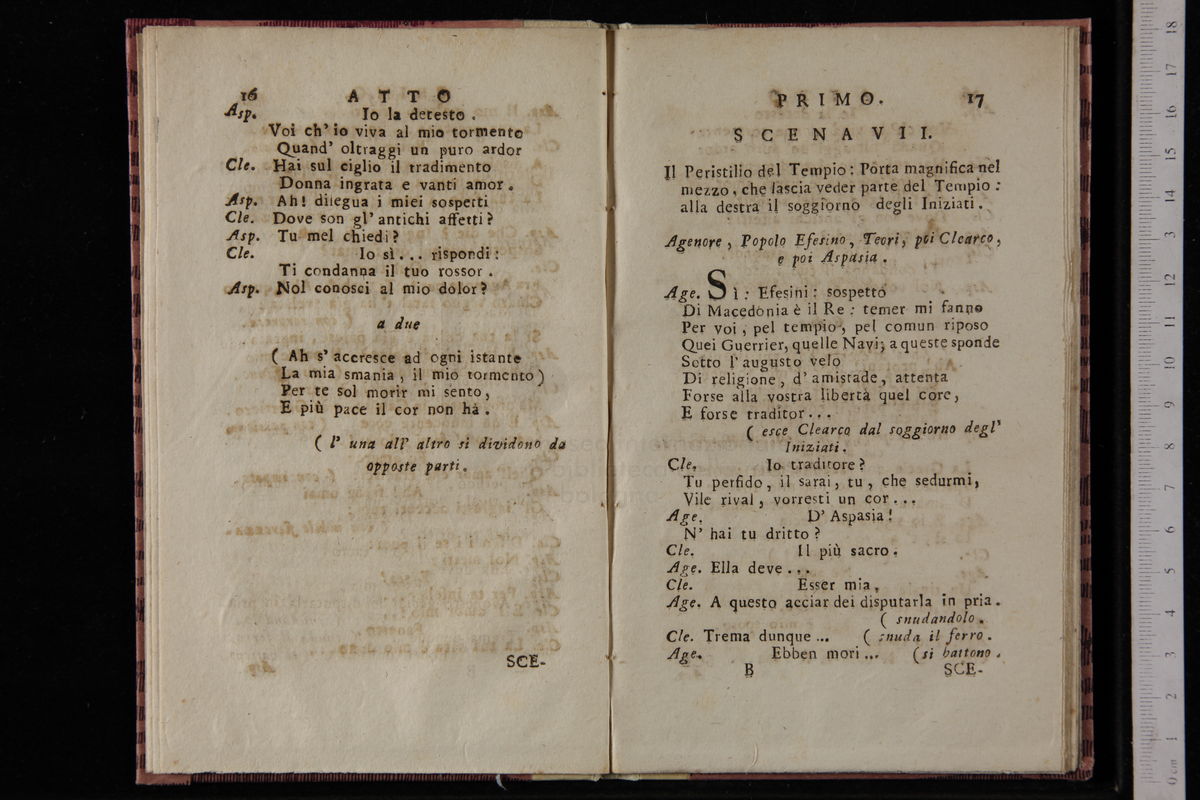 16 ATTO
Asp. Io la detesto .
Voi ch' io viva al mio tormento
Quand' oltraggi un puro ardor
Cle. Hai sul ciglio il tradimento
Donna ingrata e vanti amor .
Asp. Ah! dilegua i miei sospetti
Cle. Dove son gl' antichi affetti?
Asp. Tu mel chiedi?
Cle. Io sì... rispondi:
Ti condanna il tuo rossor .
Asp. Nol conosci al mio dolor?
a due
( Ah s' accresce ad ogni istante
La mia smania , il mio tormento )
Per te sol morir mi sento,
E più pace il cor non ha .
( l' una all' altro si dividono da
opposte parti.
SCE-
PRIMO. 17
SCENA VII.
Il Peristilio del Tempio: Porta magnifica nel
mezzo, che lascia veder parte del Tempio :
alla destra il soggiorno degli Iniziati.
Agenore , Popolo Efesino, Teori, poi Clearco,
e poi Aspasia .
Age. Sì : Efesini : sospetto
Di Macedonia è il Re : temer mi fanno
Per voi , pel tempio , pel comun riposo
Quei Guerrier, quelle Navi; a queste sponde
Sotto l' augusto velo
Di religione , d' amistade, attenta
Forse alla vostra libertà quel core,
E forse traditor ...
( esce Clearco dal soggiorno degl'
Iniziati.
Cle. Io traditore?
Tu perfido , il sarai, tu , che sedurmi,
Vile rival , vorresti un cor ...
Age. D' Aspasia !
N' hai tu dritto ?
Cle. Il più sacro .
Age. Ella deve ...
Cle. Esser mia,
Age. A questo acciar dei disputarla in pria .
( snudandolo .
Cle. Trema dunque ... ( snuda il ferro .
Age. Ebben mori ... ( si battono .
B SCE-
0 cm 1 2 3 4 5 6 7 8 9 10 11 12 13 14 15 16 17 18